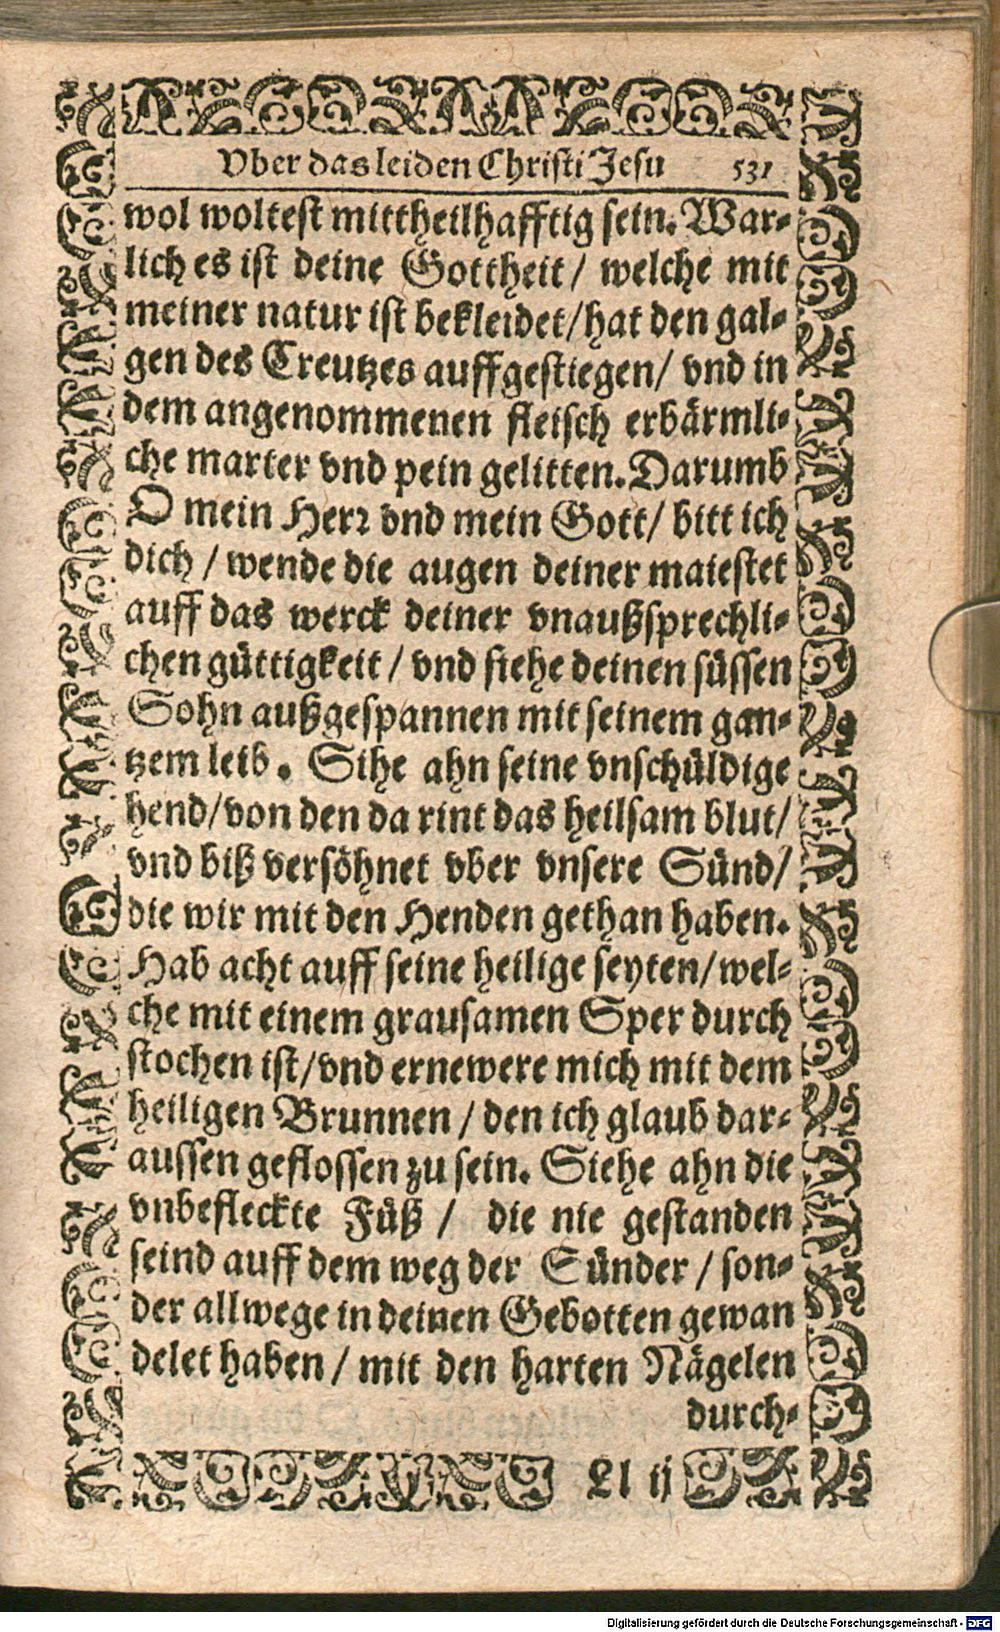 Vber das leiden Christi Jesu 531
wol woltest mittheilhafftig sein. War-
lich es ist deine Gottheit / welche mit
meiner natur ist bekleidet / hat den gal-
gen des Creutzes auffgestiegen / vnd in
dem angenommenen fleisch erbärmli-
che marter vnd pein gelitten. Darumb
O mein Herr vnd mein Gott / bitt ich
dich / wende die augen deiner maiestet
auff das werck deiner vnaußsprechli-
chen güttigkeit / vnd siehe deinen süssen
Sohn außgespannen mit seinem gan-
tzem leib. Sihe ahn seine vnschüldige
hend / von den da rint das heilsam blut /
vnd biß versöhnet vber vnsere Sünd /
die wir mit den Henden gethan haben.
Hab acht auff seine heilige seyten / wel-
che mit einem grausamen Sper durch
stochen ist / vnd ernewere mich mit dem
heiligen Brunnen / den ich glaub dar-
aussen geflossen zu sein. Siehe ahn die
vnbefleckte Füß / die nie gestanden
seind auff dem weg der Sünder / son-
der allwege in deinen Gebotten gewan
delet haben / mit den harten Nägelen
durch-
Ll ij
Digitalisierung gefördert durch die Deutsche Forschungsgemeinschaft - DFG